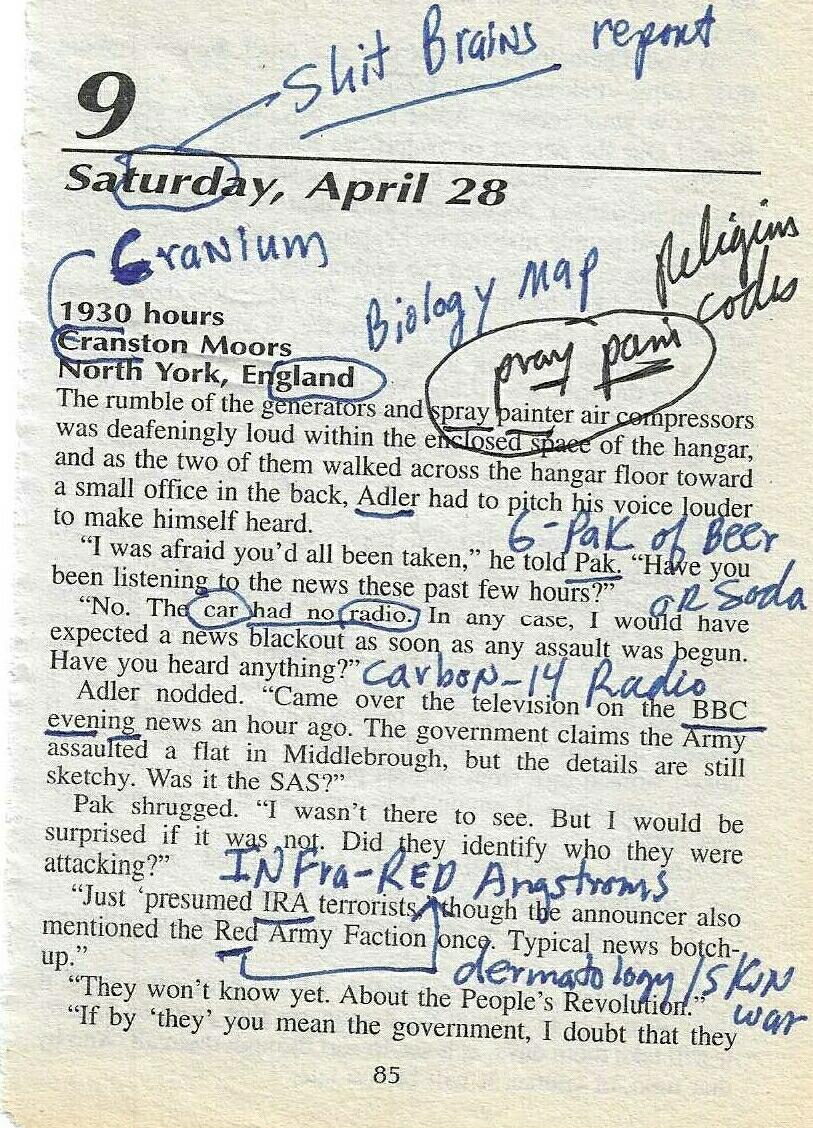 Shit Brains report
9
Saturday, April 28
Cranium
Religius
codes
Biology Map
1930 hours
Cranston Moors
pray pain
North York, England
The rumble of the generators and spray painter air compressors
was deafeningly loud within the enclosed space of the hangar,
and as the two of them walked across the hangar floor toward
a small office in the back, Adler had to pitch his voice louder
to make himself heard.
6-Pak of Beer
"I was afraid you'd all been taken," he told Pak. "Have you
been listening to the news these past few hours?"
or Soda
"No. The car had no radio. In any case, I would have
expected a news blackout as soon as any assault was begun.
Have you heard anything?"
Carbon-14 Radio
Adler nodded. "Came over the television on the BBC
evening news an hour ago. The government claims the Army
assaulted a flat in Middlebrough, but the details are still
sketchy. Was it the SAS?"
Pak shrugged. "I wasn't there to see. But I would be
surprised if it was not. Did they identify who they were
attacking?"
INFra-RED Angstroms
"Just 'presumed IRA terrorists,' though the announcer also
mentioned the Red Army Faction once. Typical news botch-
up."
dermatology/SKIN
war
"They won't know yet. About the People's Revolution."
"If by 'they' you mean the government, I doubt that they
85